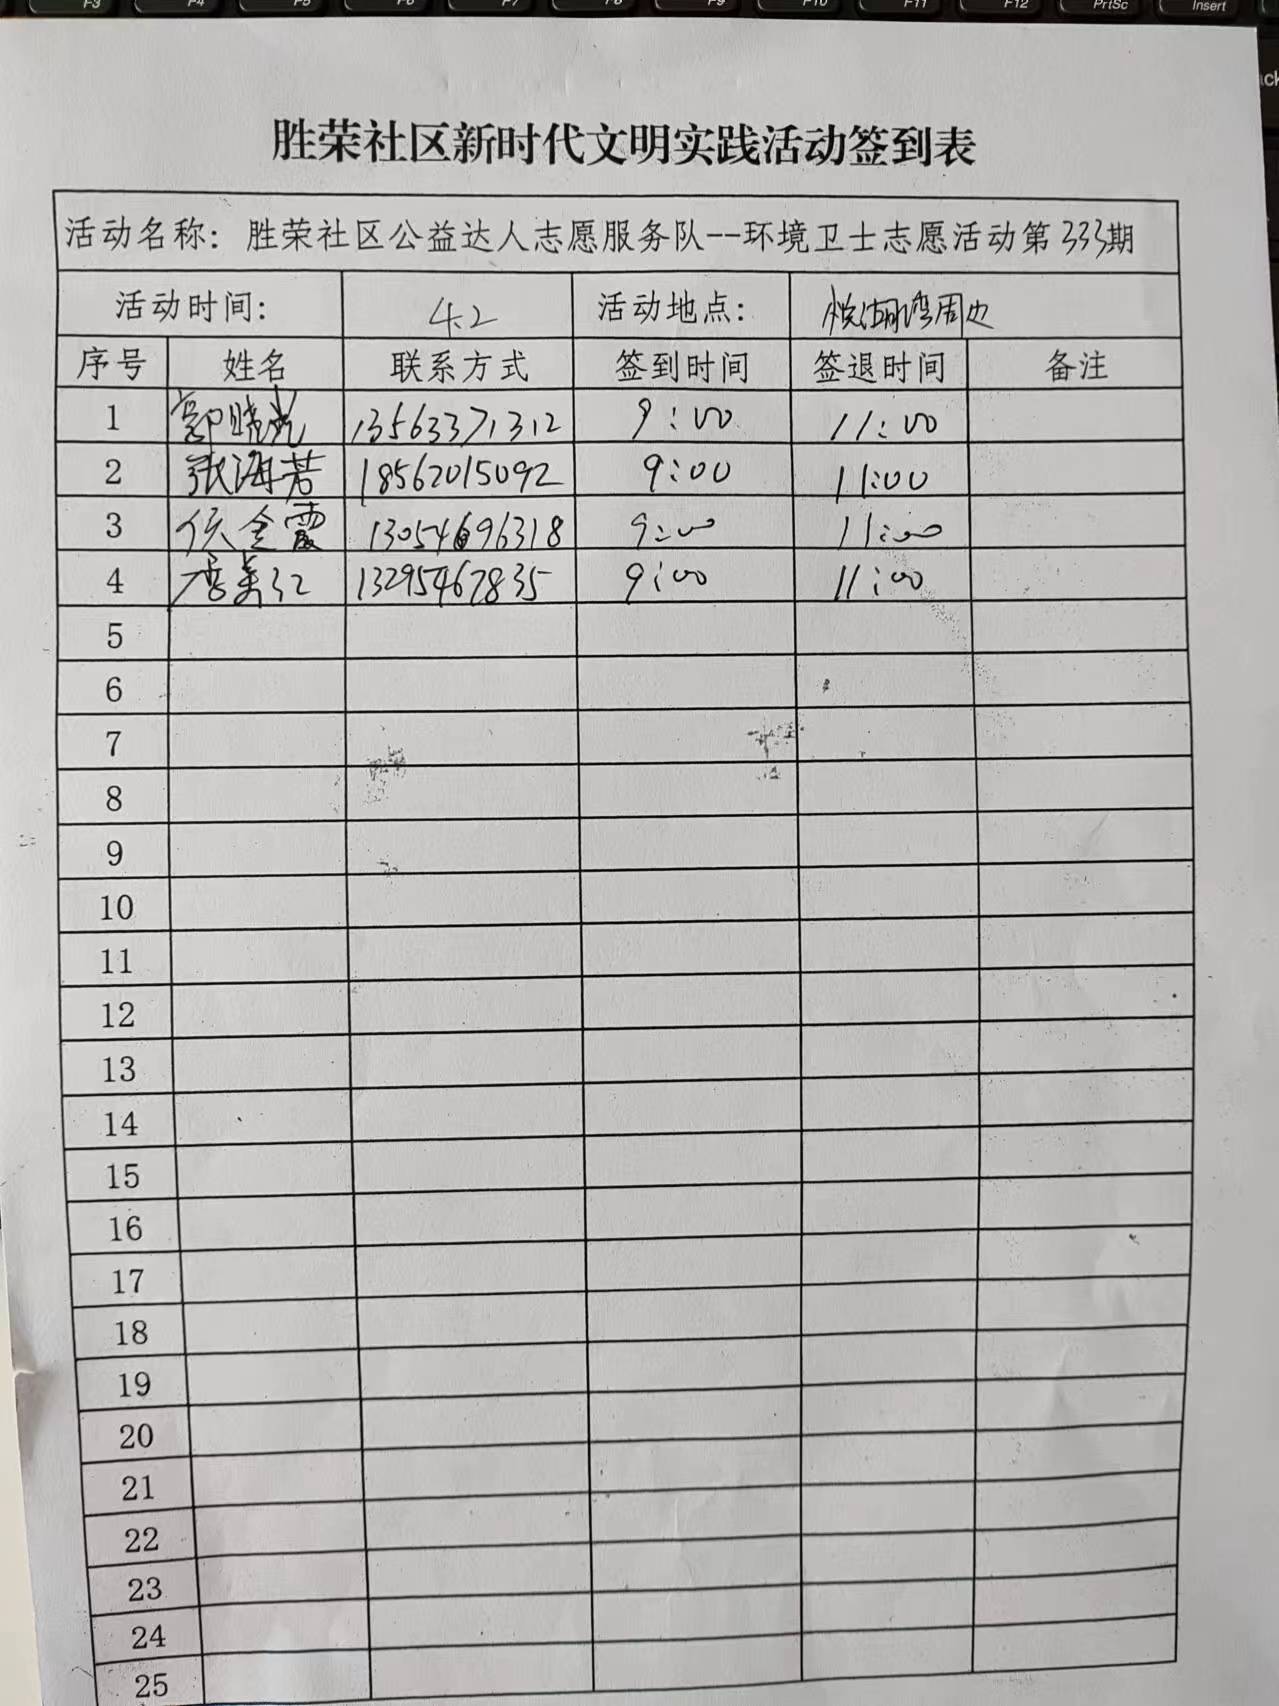 F3 F4 F5 F6 F7 F8 F9 F10 F11 F12 PrtSc Insert
胜荣社区新时代文明实践活动签到表
活动名称：胜荣社区公益达人志愿服务队--环境卫士志愿活动第333期
活动时间： 4.2 活动地点： 悦湖湾周边
序号 姓名 联系方式 签到时间 签退时间 备注
1 郭晓 13563371312 9:00 11:00
2 张海若 18562015092 9:00 11:00
3 侯金霞 13054696318 9:00 11:00
4 李美红 13295467835 9:00 11:00
5
6
7
8
9
10
11
12
13
14
15
16
17
18
19
20
21
22
23
24
25